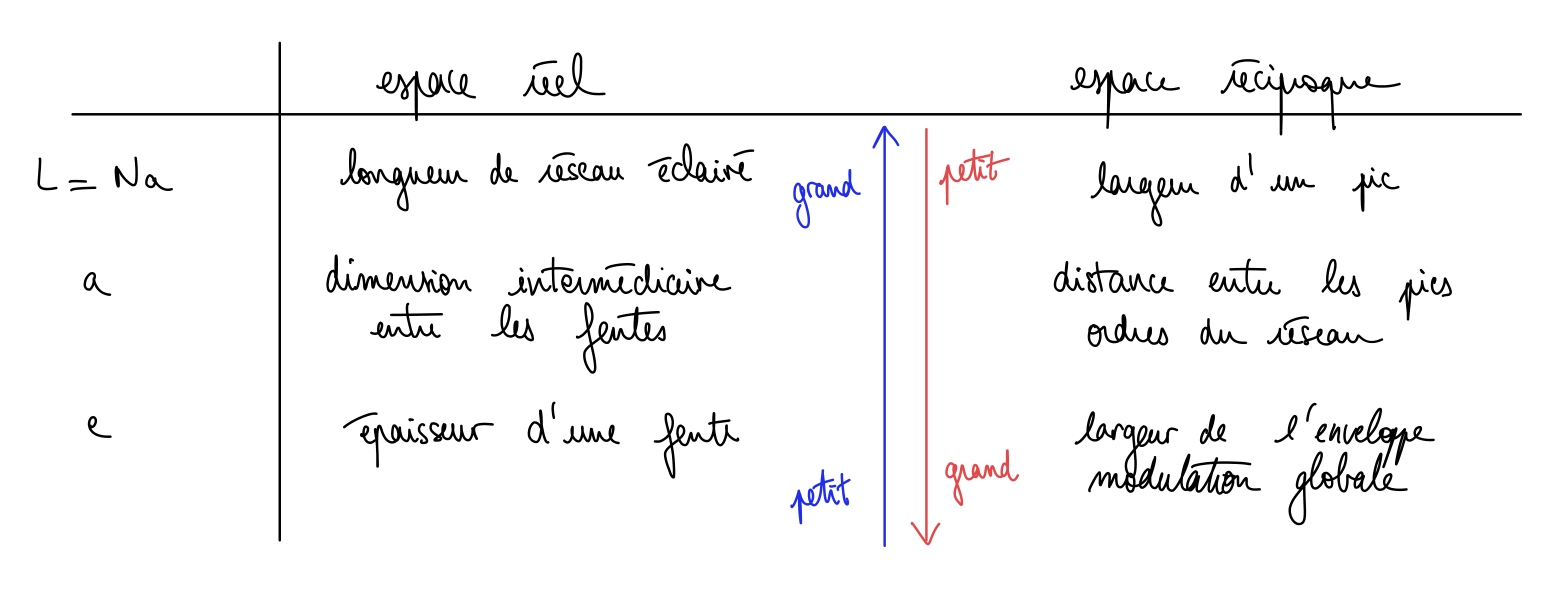 espace réel
espace réciproque
L = Na
longueur de réseau éclairé
grand
petit
largeur d'un pic
a
dimension intermédiaire
entre les fentes
distance entre les pics
ordres du réseau
e
épaisseur d'une fente
petit
grand
largeur de l'enveloppe
modulation globale